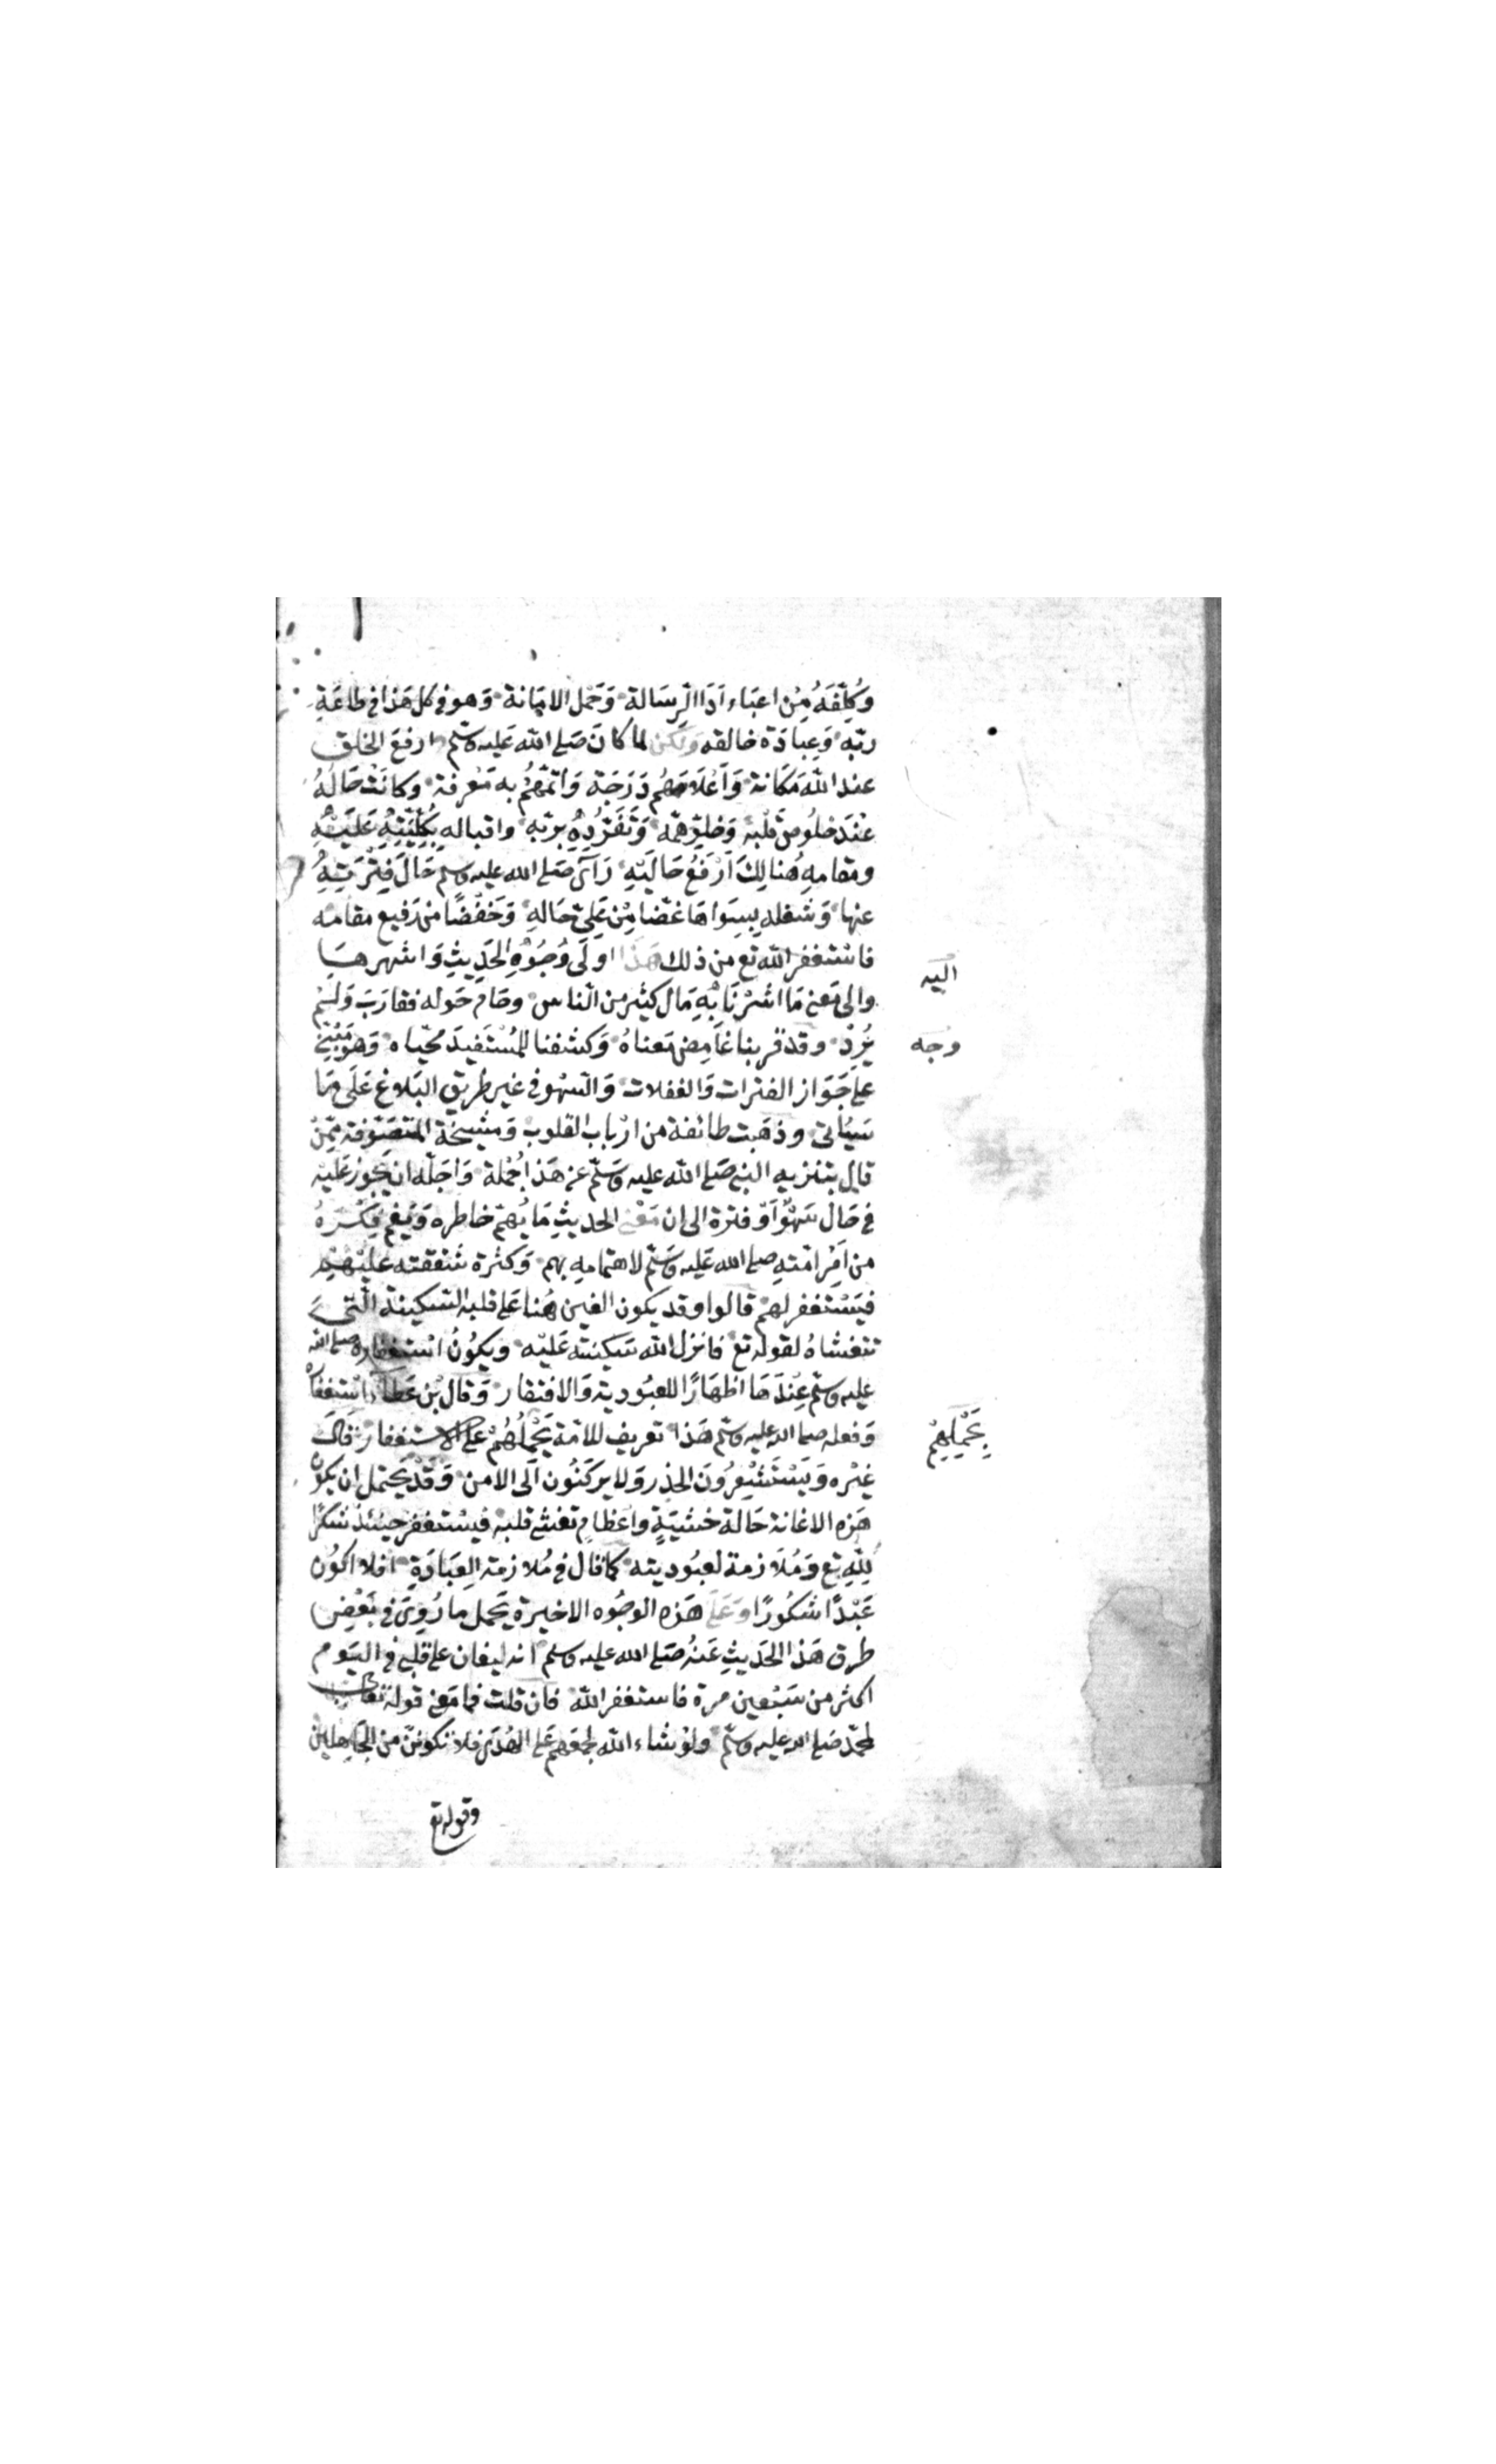 وَكُلِّفَهُ مِنْ اعبَاء اَدَا الرِّسَالة وَحَمْل الامَانة وَهو في كل هَذا في طاعَةِ
ربّه وَعِبَادَة خالقه وَلكن لما كانَ صَلى الله عَليه وسلم ارفعَ الخلق
عند الله مَكَانة وَاَعْلَاهُم دَرَجَة وَاتمّهُمْ به مَعْرفة وكانَتْ حَالُهُ
عنْدَ خلُوص قلْبه وَخلوّ همّه وَتَفَرّدِهِ بربّه واقباله بكُلّيَّتِهِ عَليْهِ
ومقامه هُنالِكَ اَرْفَعُ حَالَيْهِ رَآى صَلى الله عليه وسلم حَالَ فِتْرَتِهِ
عنها وَشغله بسِوَاهَا غضّا مِنْ عَلِيّ حَالهِ وَخفْضًا من رَفيع مقامه
فاسْتغفر الله تع من ذلك هَذا اولَى وُجُوْهِ الحَدِيثِ وَاشهرهَا
والى مَعنى مَا اشرْنَا بِهِ مَال كثير من النّاس وحَام حَوله فقارَبَ وَلَمْ
يُرِدْ وقد قربنا غامِضَ مَعناهُ وَكشفنا للمُسْتَفيدَ مُحيّاه وَهوَ مَبْنِيّ
على جَوَاز الفترات وَالغفلات وَالسّهْو في غير طريق البَلاغ عَلَى مَا
سَيُاتى وذهَبت طائفة من ارْبَاب القلوب وَمَشِيخَة المتصَوّفة مِمّنْ
قال بتنزيه النبي صَلى الله عليه وَسلّم عن هَذا جُملة وَاَجَلّه ان يجوزَ عَليْه
في حَال سَهْوٌ اَوْ فترة الى ان مَعْنى الحديثِ مَا يُهمّ خاطره وَيُغم فِكْرَهُ
من اَمْر امّتهِ صلى الله عَليه وَسَلّم لاهتمامِهِ بهم وَكثْرة شفقته عليْهمْ
فيَسْتغفر لهمْ قالوا وقد يكون الغين هُنا عَلى قلبه السّكينة الّتى
تتغشاهُ لقوله تع فانزل الله سَكينته عَليْه ويكوُنُ استغفاره صلى الله
عليه وسلّم عِنْدَهَا اظهَارًا للعبُودية وَالافتقار وَقال بْن عَطاء اسْتغفاره
وَفعله صلى الله عليه وسلّم هَذا تعريف للامّة يَحْملُهُمْ على الاستغفار قال
غيْره وَيَسْتَشْعِرُونَ الحذر وَلا يركَنُون اَلى الامن وَقَدْ يَحتمل ان يكوُن
هَذه الاغانة حَالة خشيَةٍ واعظام تغشى قلبه فيسْتغفر حينئذ شكرًا
لِلّهِ تع وَمُلَازمة لعبُوديته كما قال في مُلازمة العِبَادَةِ افلا اكُون
عَبْدًا شكُورًا وَعَلى هَذه الوجُوه الاخيرة يحمل ما رُوِىَ في بَعْضِ
طرق هَذا الحَديثِ عَنهُ صَلى الله عليه وسلم انه ليغان على قلبي في اليَوم
اكثر من سَبْعين مرة فاستغفر الله فان قلت فما مَعنى قوله تعالى
لمحمّد صَلى الله عليه وسلّم ولوْ شاء الله لجمَعهم عَلى الهُدَى فلا تكوننّ من الجَاهلين
وقوله تع
اليه
وَجه
بِحَمْلِهِمْ